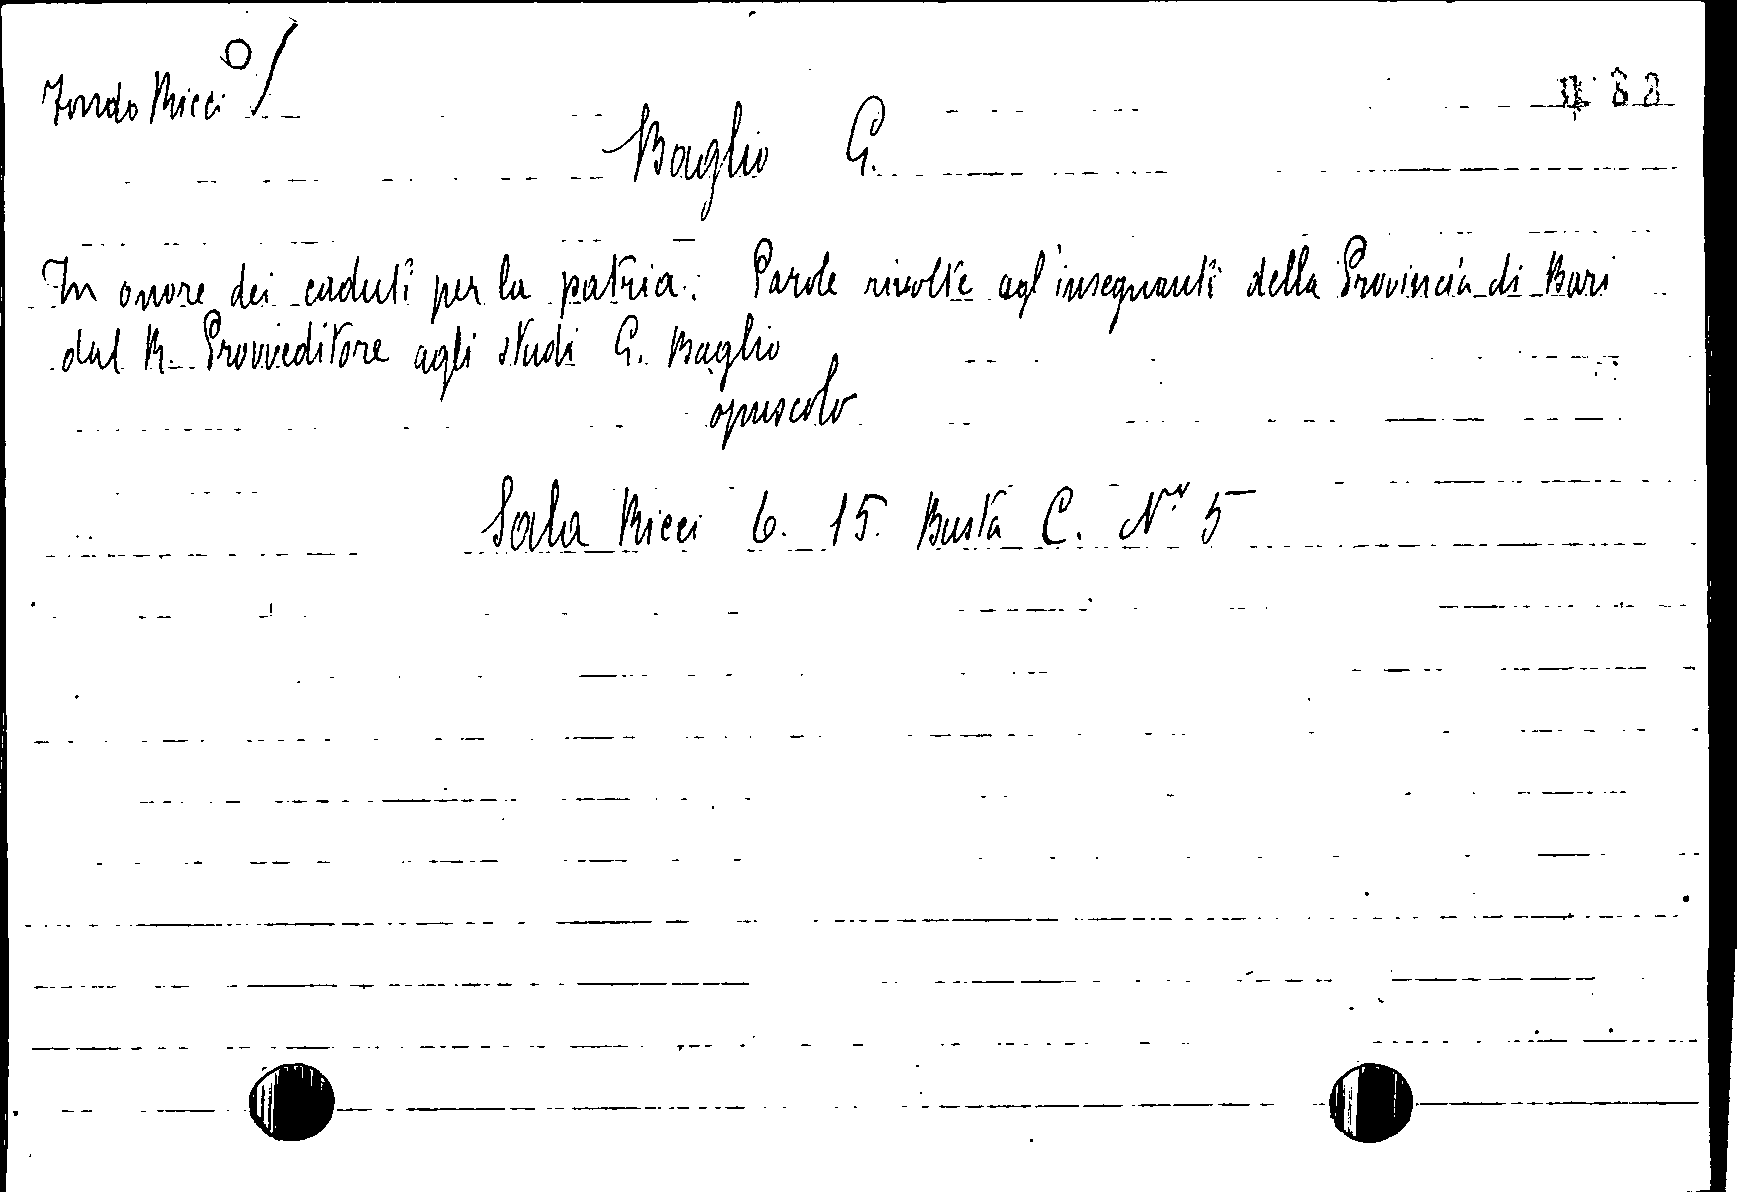 Fondo Ricci
Baglio G.
In onore dei caduti per la patria. Parole rivolte agl'insegnanti della Provincia di Bari
dal R. Provveditore agli studi G. Baglio
opuscolo
Sala Ricci 6. 15. Busta C. N.º 5